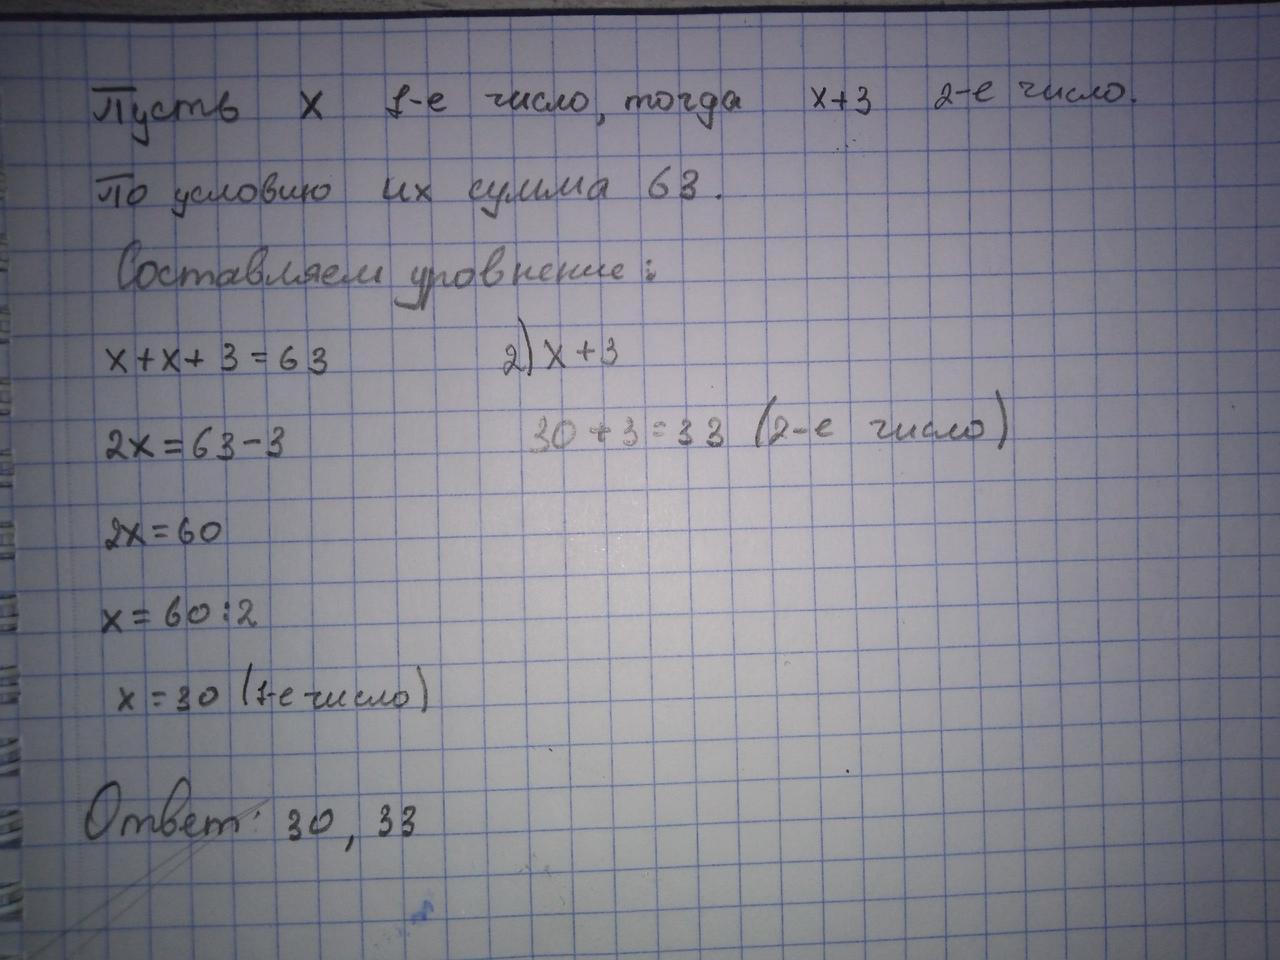 Пусть x 1-е число, тогда x+3 2-е число.
По условию их сумма 63.
Составляем уровнение:
x+x+3=63
2x=63-3
2x=60
x=60:2
x=30 (1-е число)
2) x+3
30+3=33 (2-е число)
Ответ: 30, 33